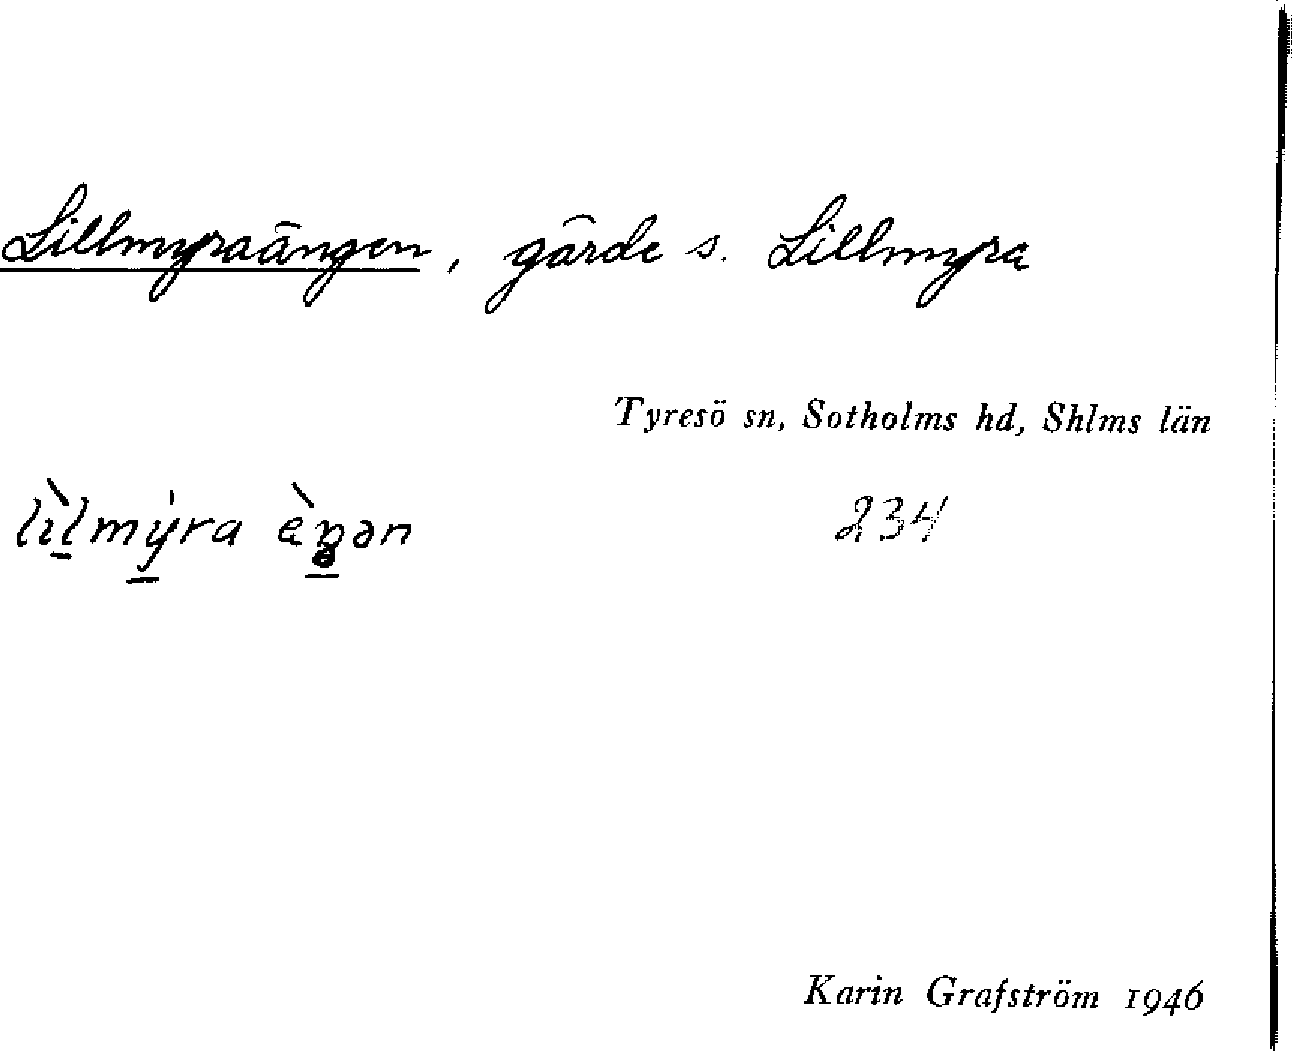 Lillmyraängen, gärde s. Lillmyra
Tyresö sn, Sotholms hd, Shlms län
lìlmýra èŋən
234
Karin Grafström 1946